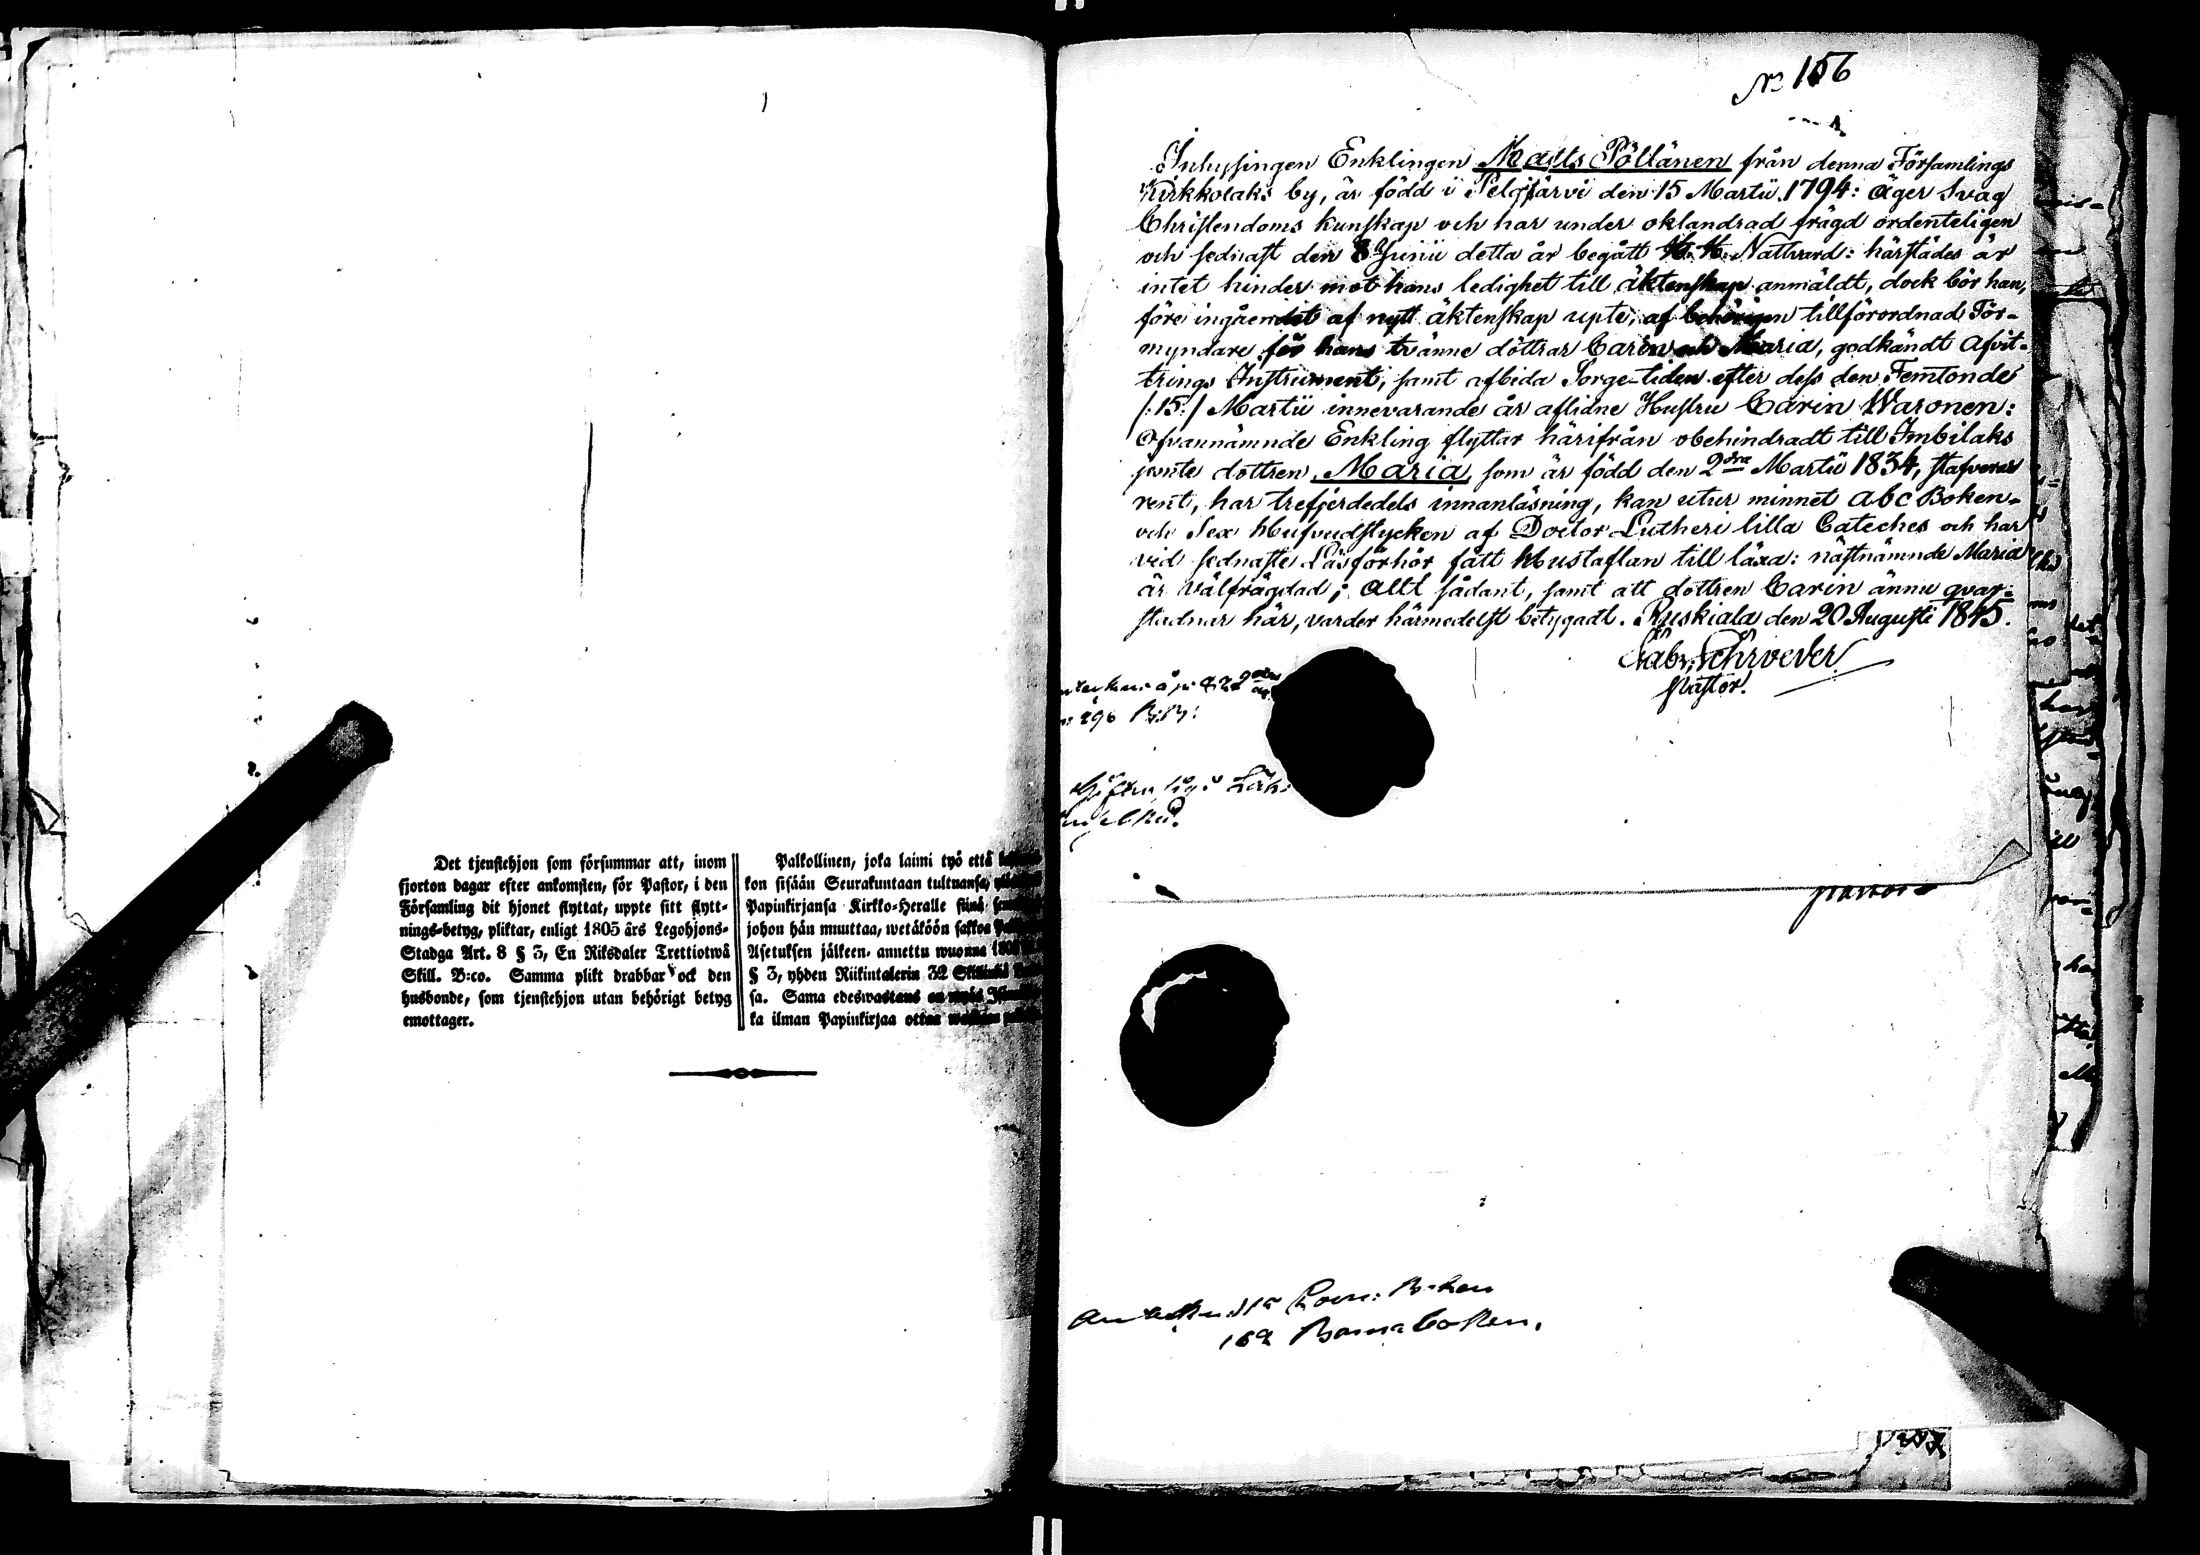 Det tjenstehjon som försummar att, inom
fjorton dagar efter ankomsten, för Pastor, i den
Församling dit hjonet flyttat, uppte sitt flytt-
nings-betyg, pliktar, enligt 1805 års Legohjons-
Stadga Art. 8 § 3, En Riksdaler Trettiotwå
Skill. B:co. Samma plikt drabbar ock den
husbonde, som tjenstehjon utan behörigt betyg
emottager.
Palkollinen, joka laimi työ että
kon sisään Seurakuntaan tultuansa,
Papinkirjansa Kirkko-Heralle siinä
johon hän muuttaa, wetäköön sakkoa
Asetuksen jälkeen, annettu wuonna
§ 3, yhden Riikintalerin 32 Skillinkiä
sa. Sama edeswastaus on myös
ka ilman Papinkirjaa ottaa
No 156
Inhysingen Enklingen Matts Pöllänen från denna Församlings
Kirkkolaks by, är född i Pelgjärvi den 15 Martii 1794: äger Svag
Christendoms kunskap och har under oklandrad frägd ordenteligen
och sednast den 8 Junii detta år begått H. H. Nattvard: härstädes är
intet hinder mot hans ledighet till äktenskap anmäldt, dock bör han,
före ingåendet af nytt äktenskap upte, af behörigen tillförordnad För-
myndare för hans tvänne döttrar Carin och Maria, godkändt Afvit-
trings Instrument, samt afbida Sorge-tiden efter dess den Femtonde
/:15:/ Martii innevarande år aflidne Hustru Carin Waronen:
Ofvannämnde Enkling flyttar härifrån obehindradt till Imbilaks
jemte dottren Maria, som är född den 2dra Martii 1834, stafvar
rent, har trefjerdedels innanläsning, kan utur minnet abc Boken
och Sex Hufvudstycken af Doctor Lutheri lilla Cateches och har
vid sednaste Läsförhör fått Hustaflan till läxa: nästnämnde Maria
är välfrägdad; allt sådant, samt att dottren Carin ännu qvar-
stadnar här, varder härmedelst betygadt. Ruskiala den 20 Augusti 1845.
Gabr. Schroeder
Pastor.
296
Pastor
Boken
162 Barnaboken.